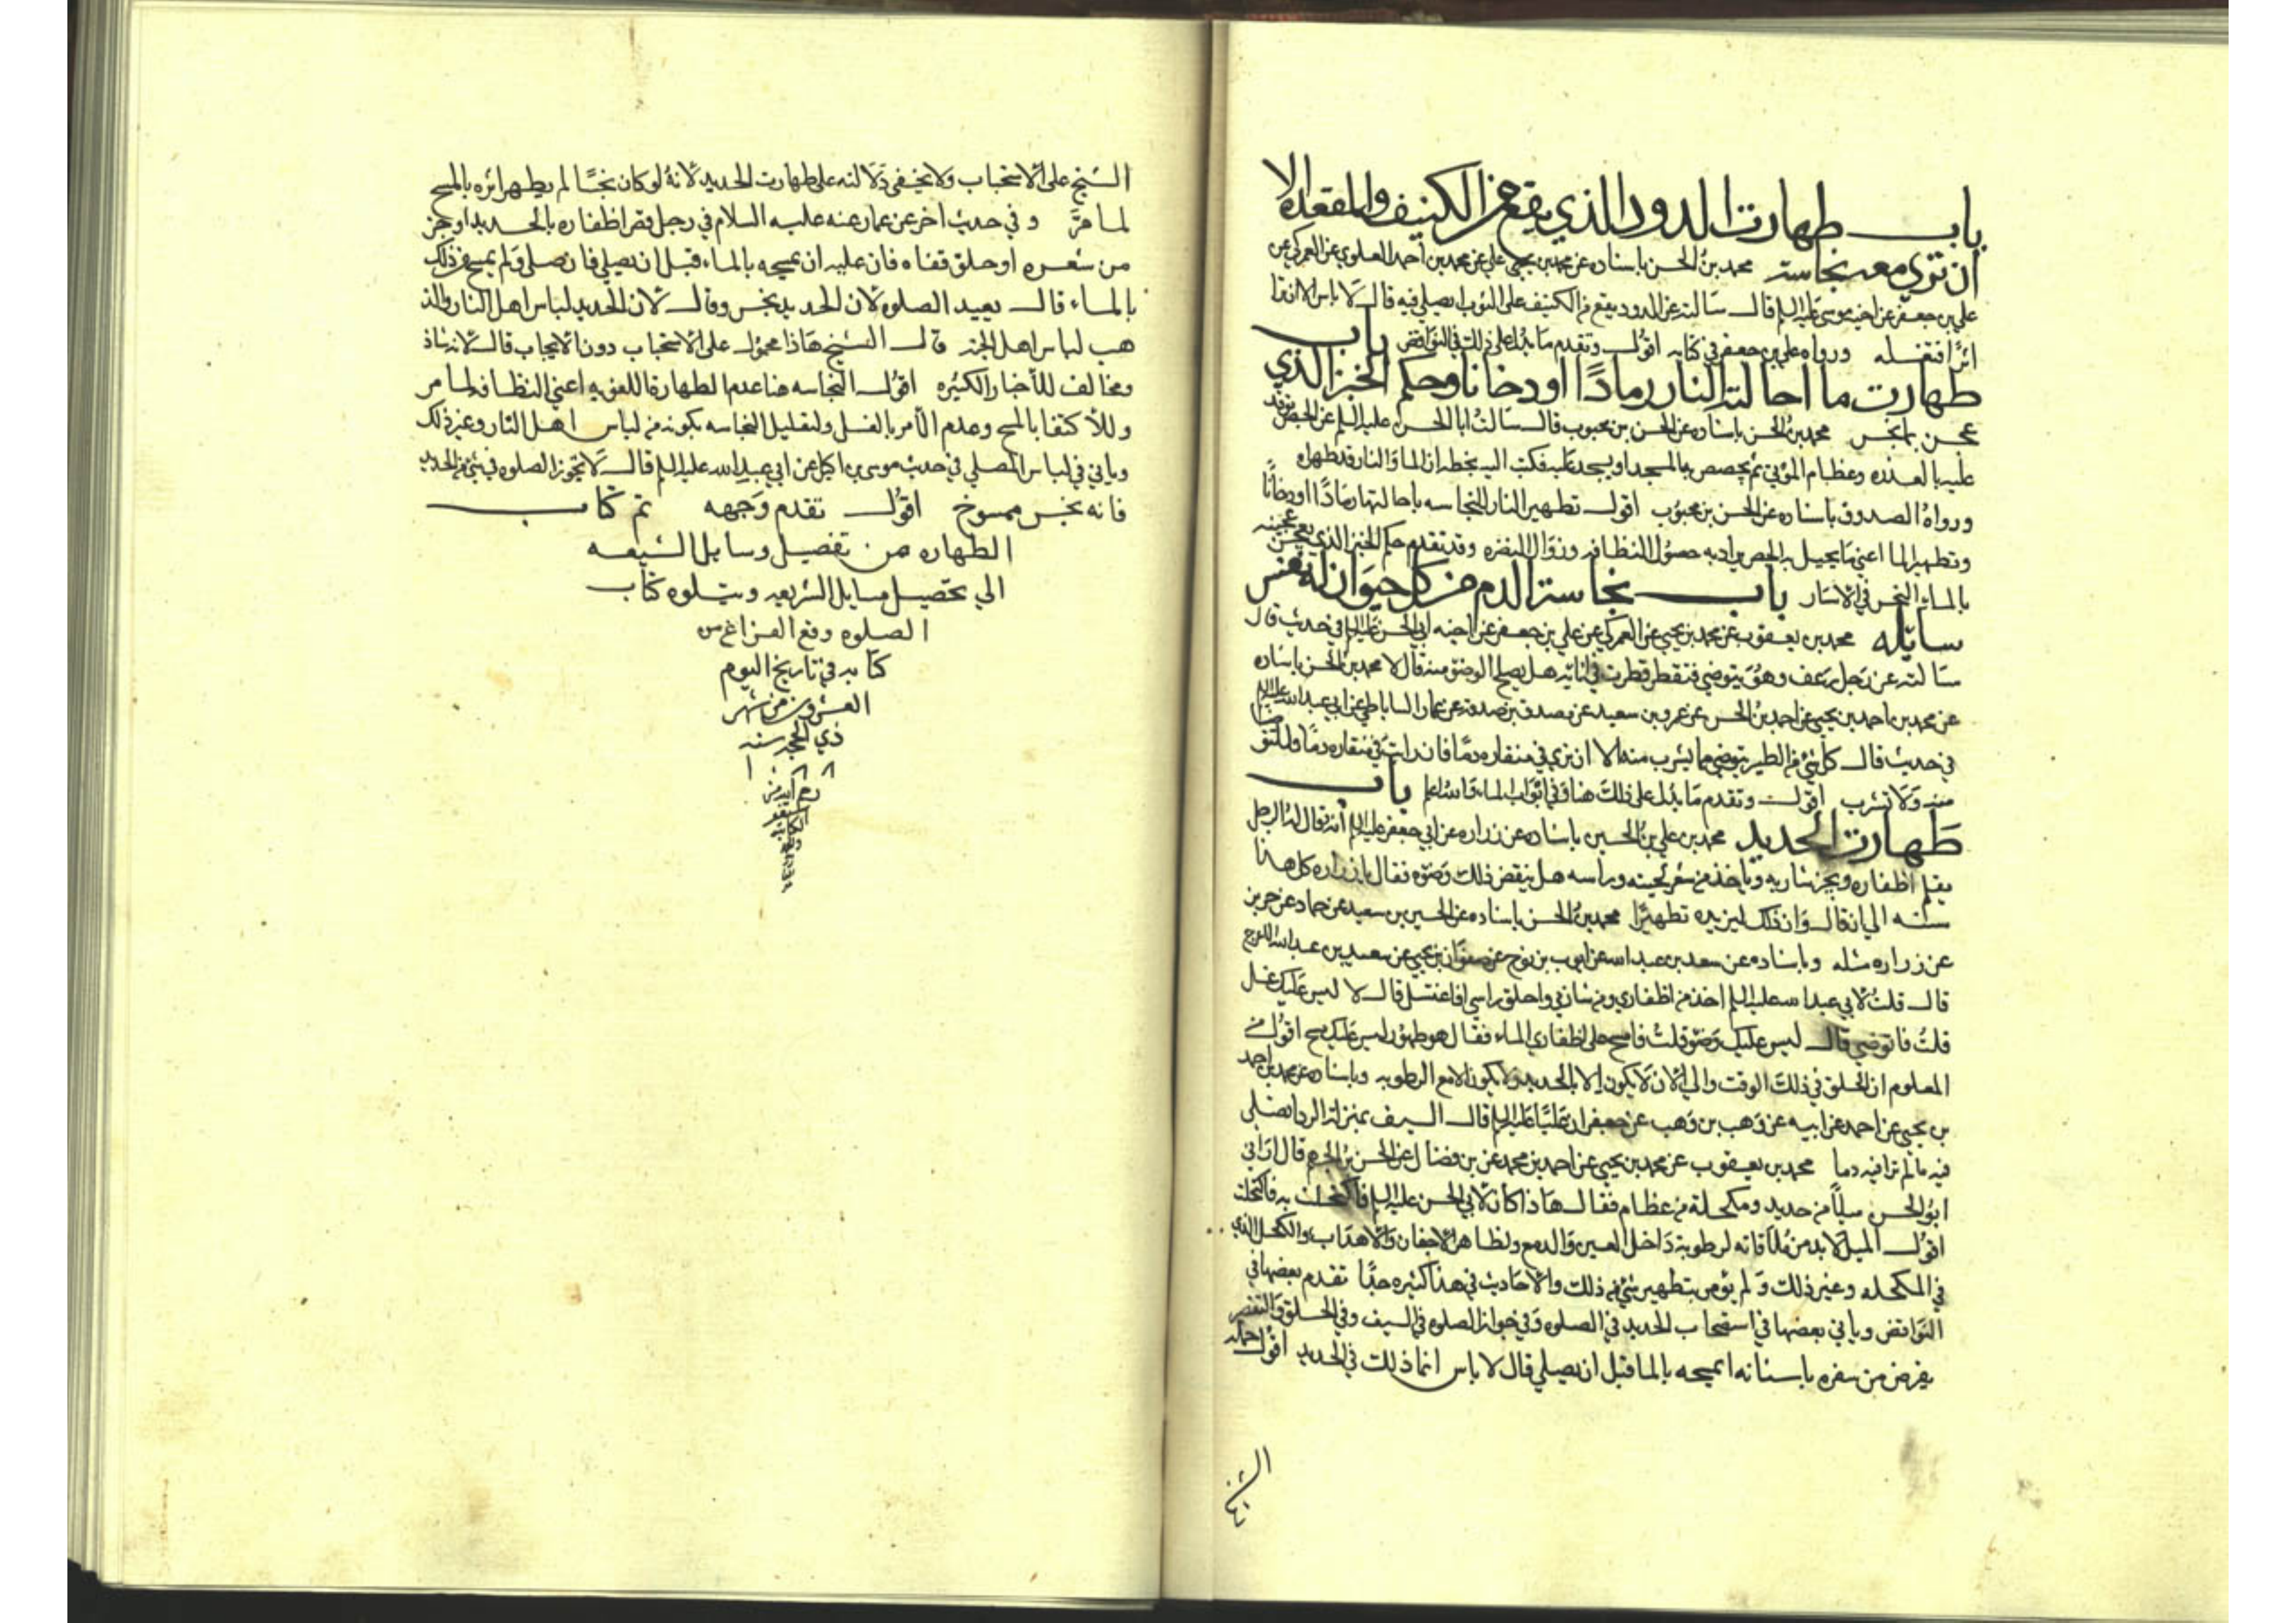 باب طهارت الدود الذي يقع من الكنيف والمقعده الا
ان تري معه نجاسة محمد بن الحسن باسناده عن محمد بن علي عن محمد بن احمد العلوي عن العمركي عن
علي بن جعفر عن اخيه موسى عليه السلم قال سالته عن الدود يقع من الكنيف على الثوب ايصلي فيه قال لا باس الا ان ترا
اثرًا فتغسله ورواه علي بن جعفر في كتابه اقول وتقدم ما يدل على ذلك في النواقض باب
طهارت ما احالته النار رمادًا او دخانا وحكم الخبز الذي
عجن بماء نجس محمد بن الحسن باسناده عن الحسن بن محبوب قال سالت ابا الحسن عليه السلم عن الجص يوقد
عليه بالعذره وعظام الموتى ثم يجصص به المسجد او يسجد عليه فكتب اليه بخطه ان الما والنار قد طهراه
ورواه الصدوق باسناده عن الحسن بن محبوب اقول تطهير النار للنجاسه باحالتها رمادًا او دخانًا
وتطهير الما اعني ما يجبل به الجص يراد به حصول النظافه وزوال النفره وقد تقدم حكم الخبز الذي يعجن عجينه
بالماء النجس في الاسار باب نجاسة الدم من كل حيوان له نفس
سايله محمد بن يعقوب عن محمد بن يحيى عن العمركي عن علي بن جعفر عن اخيه ابي الحسن عليه السلم في حديث قال
سالته عن رجل رعف وهو يتوضي فتقطر قطرت في انائه هل يصلح الوضو منه قال لا محمد بن الحسن باسناده
عن محمد بن احمد بن يحيى عن احمد بن الحسن عن عمرو بن سعيد عن مصدق بن صدقه عن عمار الساباطي عن ابي عبد الله عليه السلم
في حديث قال كل شي من الطير يتوضي مما يشرب منه الا ان ترى في منقاره دمًا فان رايت في منقاره دمًا فلا تتوضا
منه ولا تشرب اقول وتقدم ما يدل على ذلك هنا وفي ابواب الماء والله اعلم باب
طهارت الحديد محمد بن علي بن الحسين باسناده عن زراره عن ابي جعفر عليه السلم انه قال له الرجل
يقلم اظفاره ويجز شاربه وياخذ من شعر لحيته وراسه هل ينقض ذلك وضوه فقال يا زراره كل هذا
سنه الي ان قال وان ذلك ليزيده تطهيرًا محمد بن الحسن باسناده عن الحسين بن سعيد عن حماد عن حريز
عن زراره مثله وباسناده عن سعد بن عبد الله عن ايوب بن نوح عن صفوان بن يحيى عن سعيد بن عبد الله الاعرج
قال قلت لابي عبد الله عليه السلم اخذ من اظفاري ومن شاربي واحلق راسي افاغتسل قال لا ليس عليك غسل
قلت فاتوضي قال ليس عليك وضو قلت فامسح على اظفاري الماء فقال هو طهور ليس عليك مسح اقول من
المعلوم ان الحلق في ذلك الوقت والي الان لا يكون الا بالحديد ولا يكون الا مع الرطوبه وباسناده عن محمد بن احمد
بن يحيى عن احمد عن ابيه عن وهب بن وهب عن جعفر ان عليًا عليه السلم قال السيف بمنزلة الردا تصلي
فيه ما لم ترا فيه دما محمد بن يعقوب عن محمد بن يحيى عن احمد بن محمد عن بن فضال عن الحسن بن الجهم قال اراني
ابو الحسن ميلاً من حديد ومكحلة من عظام فقال هاذا كان لابي الحسن عليه السلم فاكتحل به فاكتحلت
اقول الميل لا بد من ملاقاته لرطوبة داخل العين والدمع ولظاهر الاجفان والاهداب والكحل الذي
في المكحله وغير ذلك ولم يومر بتطهير شي من ذلك والاحاديث في هذا كثيره جدًا تقدم بعضها في
النواقض وياتي بعضها في استصحاب الحديد في الصلوه وفي جواز الصلوه في السيف وفي الحلق والتقصير
يقرض من شعره باسنانه ايمسحه بالما قبل ان يصلي قال لا باس انما ذلك في الحديد اقول حمله
الشيخ
الشيخ على الاستحباب ولا يخفى دلالته على طهارت الحديد لانه لو كان نجسًا لم يطهر اثره بالمسح
لما مرَّ وفي حديث اخر عن عمار عنه عليه السلام في رجل قص اظفاره بالحديد او جز
من شعره او حلق قفاه فان عليه ان يمسحه بالماء قبل ان يصلي فان صلى ولم يمسح من ذلك
بالماء قال يعيد الصلوه لان الحديد نجس وقال لان الحديد لباس اهل النار والذ
هب لباس اهل الجنة قال الشيخ هاذا محمول على الاستحباب دون الايجاب قال لانه شاذ
ومخالف للأخبار الكثيره اقول النجاسه هنا عدم الطهارة اللغويه اعني النظافه لما مر
وللاكتفا بالمسح وعدم الأمر بالغسل ولتعليل النجاسه بكونه من لباس اهل النار وغير ذلك
وياتي في لباس المصلي في حديث موسى بن اكيل عن ابي عبد الله عليه السلم قال لا تجوز الصلوه في شي من الحديد
فانه نجس ممسوخ اقول تقدم وجهه تم كتاب
الطهاره من تفصيل وسايل الشيعه
الي تحصيل مسايل الشريعه ويتلوه كتاب
الصلوه وقع الفراغ من
كتابه في تاريخ اليوم
العشرون من شهر
ذي الحجه سنه